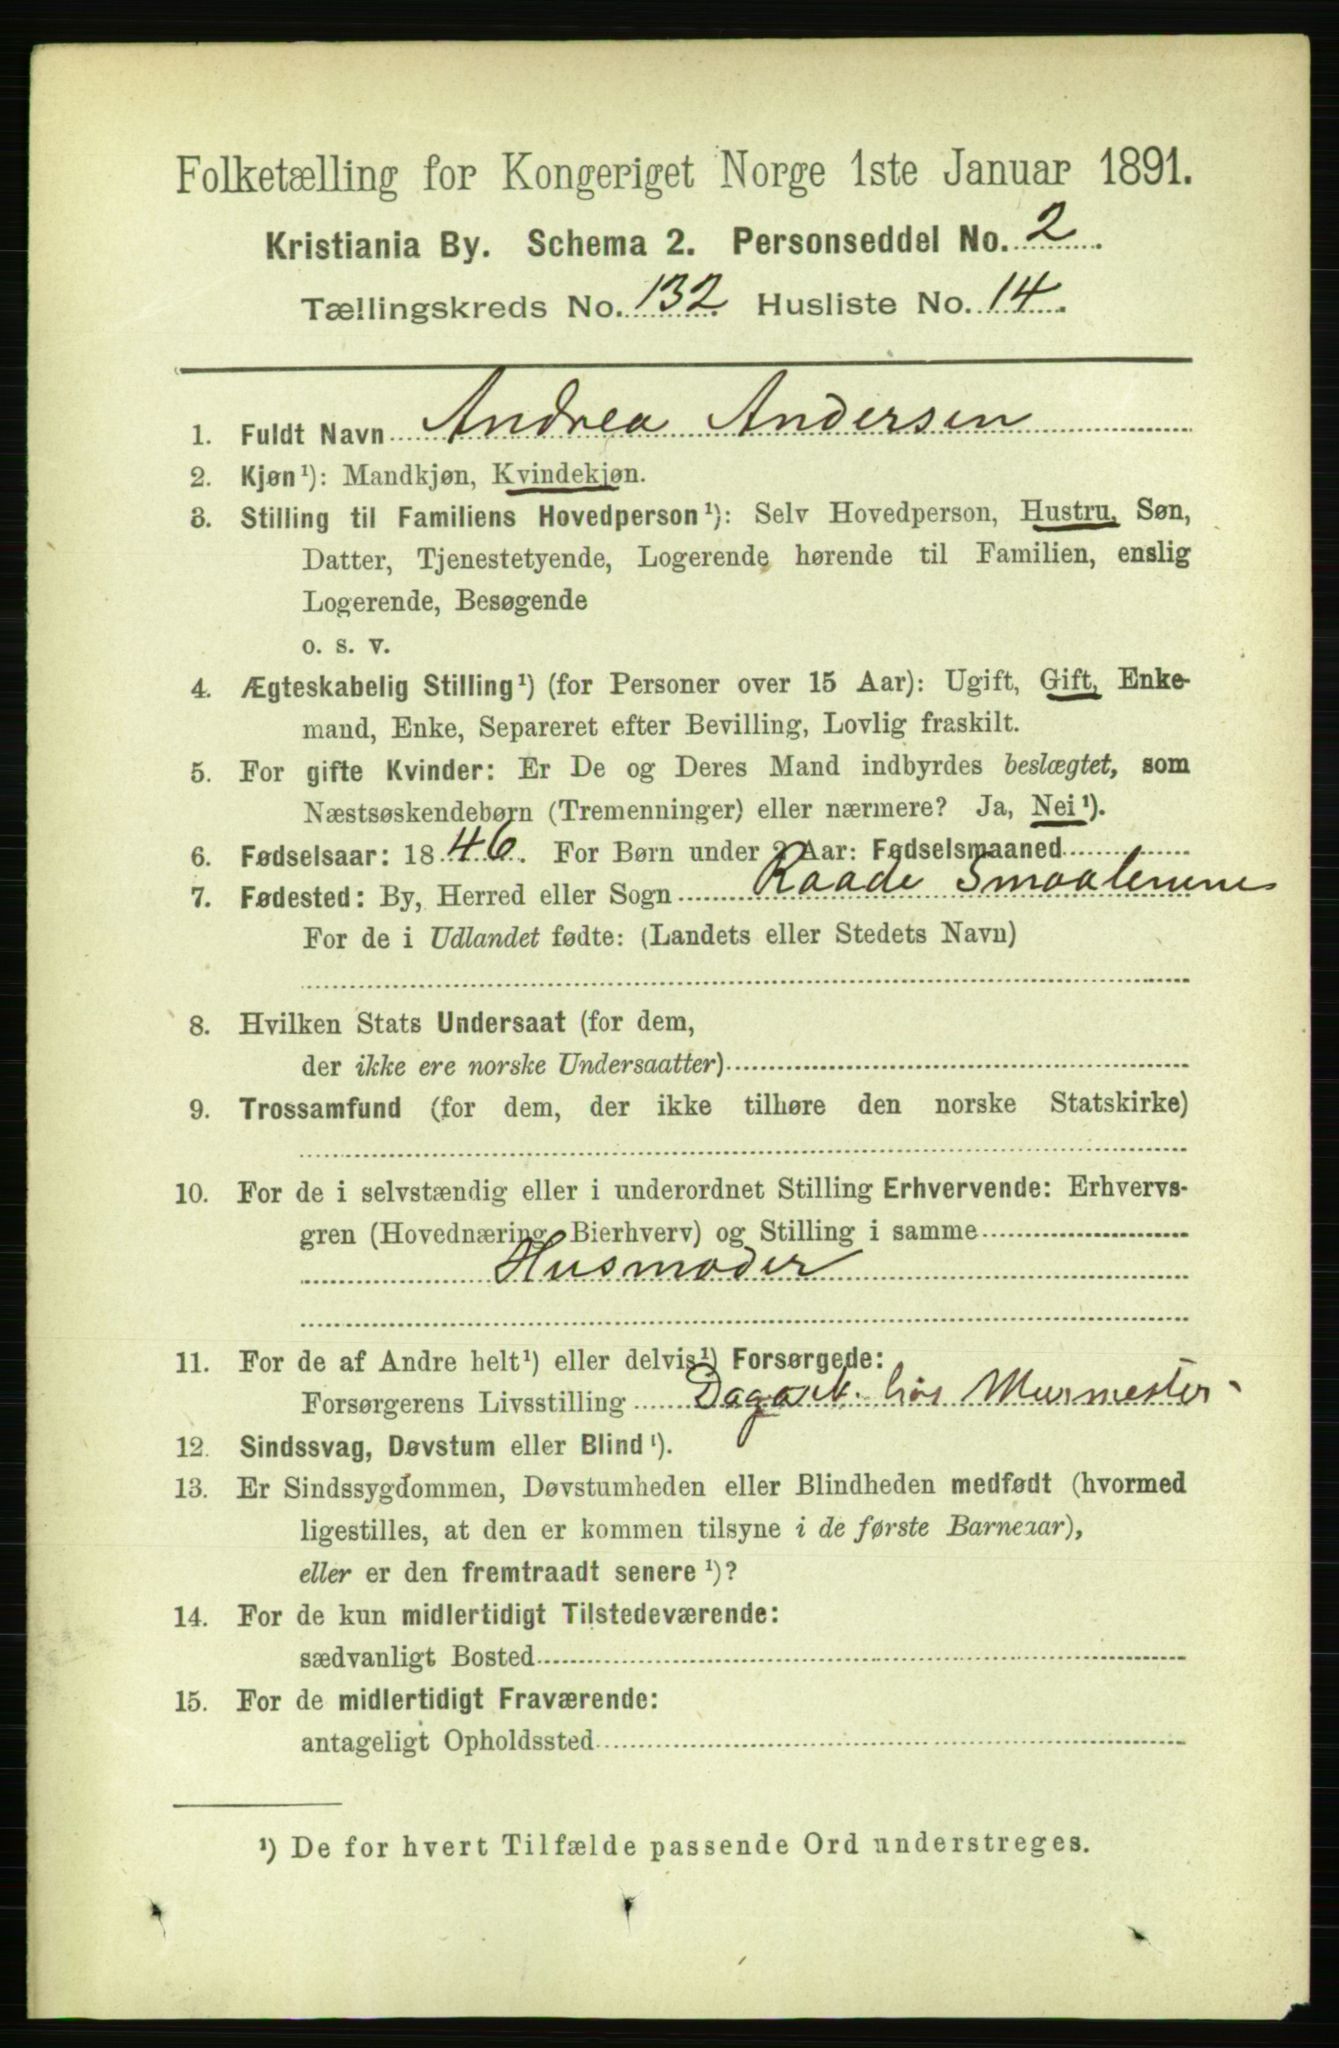 Folketælling for Kongeriget Norge 1ste Januar 1891.
Kristiania By. Schema 2. Personseddel No. 2.
Tællingskreds No. 132. Husliste No. 14.
1. Fuldt Navn Andrea Andersen
2. Kjøn¹): Mandkjøn, Kvindekjøn.
3. Stilling til Familiens Hovedperson¹): Selv Hovedperson, Hustru, Søn,
Datter, Tjenestetyende, Logerende hørende til Familien, enslig
Logerende, Besøgende
o. s. v.
4. Ægteskabelig Stilling¹) (for Personer over 15 Aar): Ugift, Gift, Enke-
mand, Enke, Separeret efter Bevilling, Lovlig fraskilt.
5. For gifte Kvinder: Er De og Deres Mand indbyrdes beslægtet, som
Næstsøskendebørn (Tremenninger) eller nærmere? Ja, Nei¹).
6. Fødselsaar: 1846. For Børn under 2 Aar: Fødselsmaaned
7. Fødested: By, Herred eller Sogn Raade Smaalenene
For de i Udlandet fødte: (Landets eller Stedets Navn)
8. Hvilken Stats Undersaat (for dem,
der ikke ere norske Undersaatter)
9. Trossamfund (for dem, der ikke tilhøre den norske Statskirke)
10. For de i selvstændig eller i underordnet Stilling Erhvervende: Erhvervs-
gren (Hovednæring, Bierhverv) og Stilling i samme
Husmoder
11. For de af Andre helt¹) eller delvis¹) Forsørgede:
Forsørgerens Livsstilling Dagarb. hos Murmester
12. Sindssvag, Døvstum eller Blind¹).
13. Er Sindssygdommen, Døvstumheden eller Blindheden medfødt (hvormed
ligestilles, at den er kommen tilsyne i de første Barneaar),
eller er den fremtraadt senere¹)?
14. For de kun midlertidigt Tilstedeværende:
sædvanligt Bosted
15. For de midlertidigt Fraværende:
antageligt Opholdssted
¹) De for hvert Tilfælde passende Ord understreges.